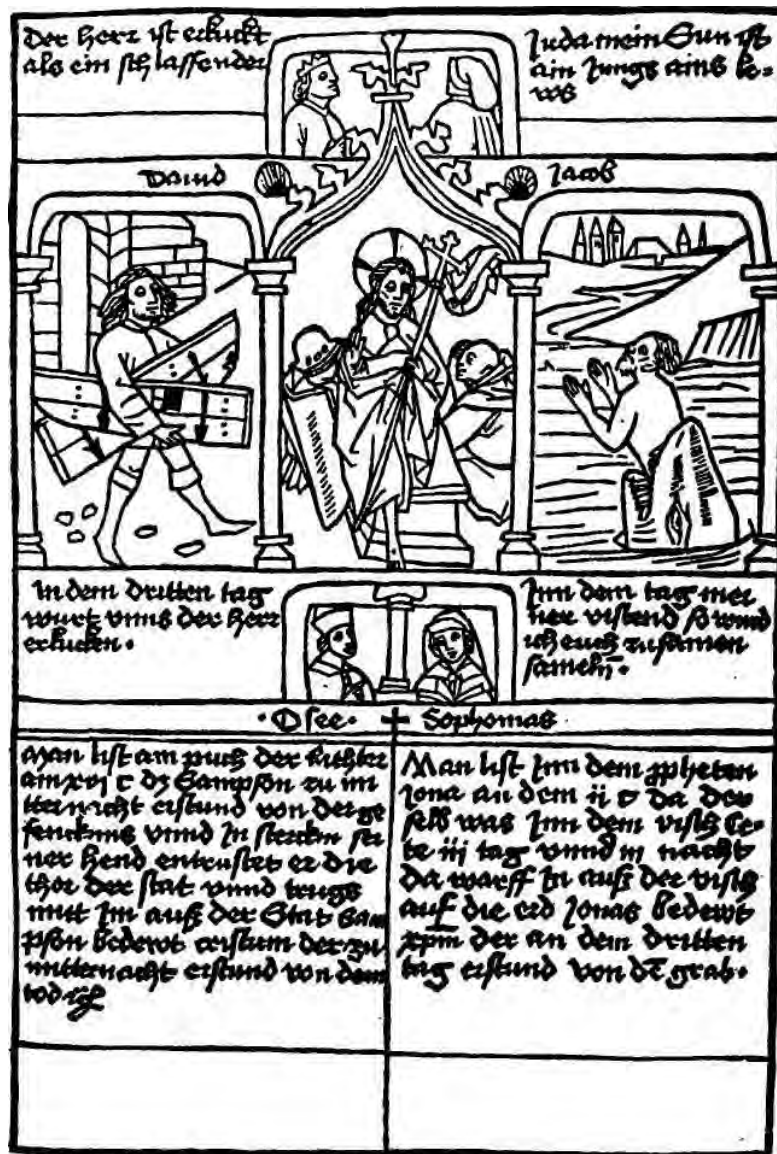 Der herr ist erkuckt
als ein schlaffender
Juda mein Sun ist
ain Jungs ains le-
ws
Dauid
Jacob
in dem dritten tag
wurt vnns der herr
erkucken.
Jnn dem tag mei
ner vrstend so wird
ich euch zusamen
sameln.
Osee
Sophonias
Man list am puch der Richter
am xvi c dz Sampson zu mi
tternacht erstund von der ge
fencknus vnnd In stercken sei
ner hend entrustet er die
thor der stat vnnd trugs
mitt Im auß der Stat Sam
pson bedewt cristum der zu
mitternacht erstund von dem
tod
Man list Jnn dem ppheten
Jona an dem ii c da der
selb was Jnn dem visch
iii tag vnnd iii nacht
da warff In auß der visch
auf die erd Jonas bedewt
xpm der an dem dritten
tag erstund von de grab.